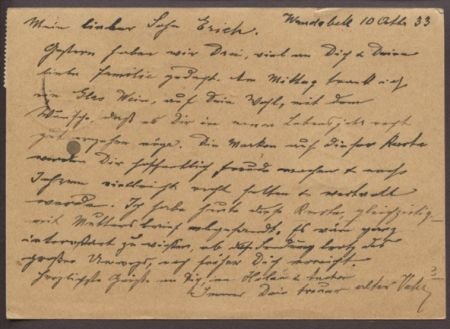 Mein lieber Sohn Erich. Wandsbek 10 Okt. 33
Gestern haben wir Drei, viel an Dich & Deine
liebe Familie gedacht. Am Mittag trank ich
ein Glas Wein, auf Dein Wohl, mit dem
Wunsch, daß es Dir im neuen Lebensjahr recht
gut ergehen möge. Die Marken auf dieser Karte
werden Dir hoffentlich Freude machen & nach
Jahren vielleicht recht selten & wertvoll
werden. Ich habe heute diese Karte, gleichzeitig
mit Mutters Brief abgesandt. Es wäre ganz
interessant zu wissen, ob das Sendung trotz des
großen Umwegs, noch früher Dich erreicht.
Herzlichste Grüße an Dich, an &
Immer Dein treuer alter Vater